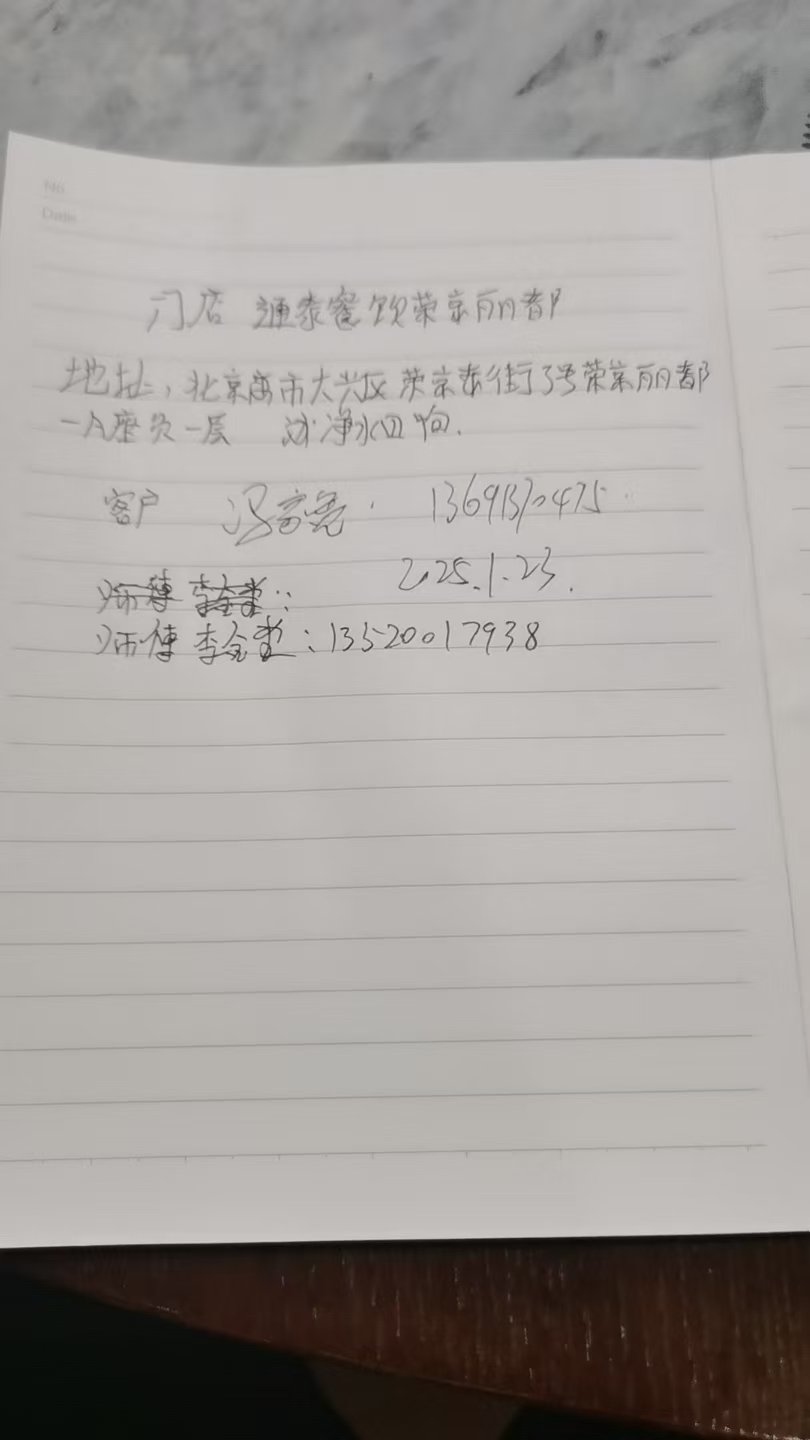 No.
Date
门店 通泰餐饮荣京丽都
地址，北京市大兴区荣京东街3号荣京丽都
一A座负一层 净水四
客户 冯 13691370475
2025.1.23.
师傅
师傅 李金堂：13520017938